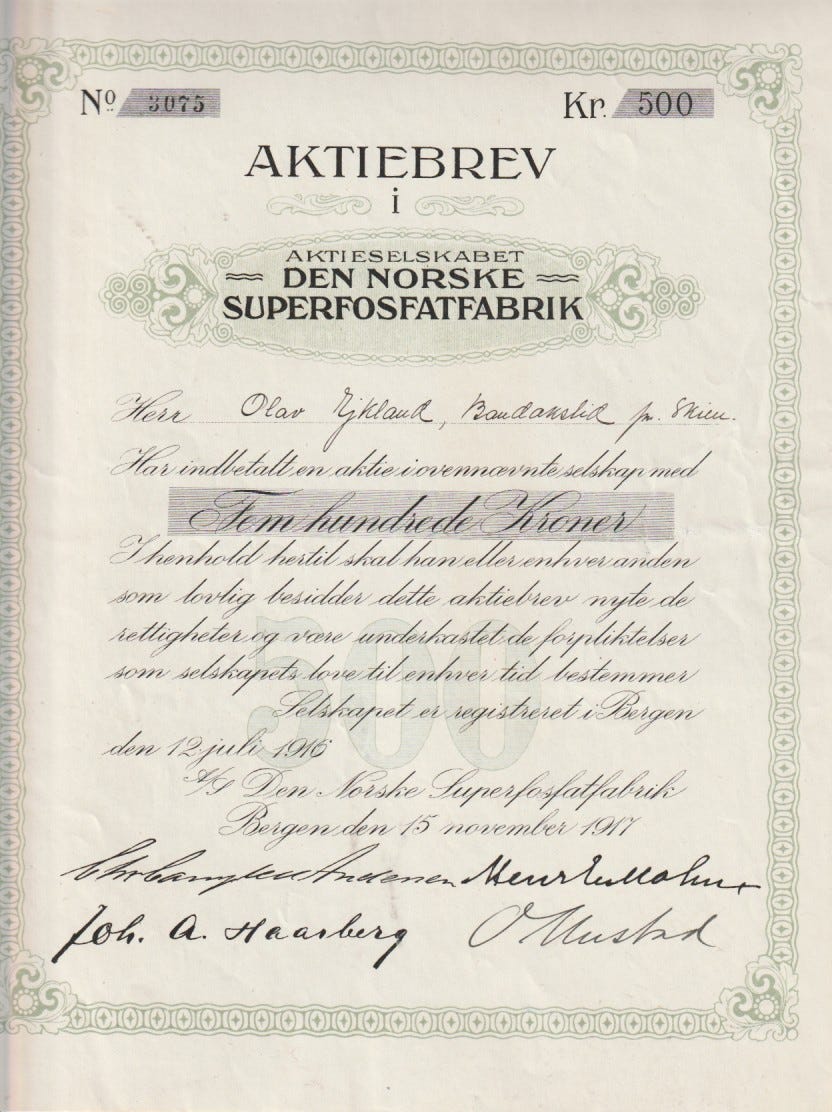 No 3075 Kr. 500
AKTIEBREV
i
AKTIESELSKABET
DEN NORSKE
SUPERFOSFATFABRIK
Herr Olav , Bandakslid pr. Skien.
Har indbetalt en aktie i ovennævnte selskap med
Fem hundrede Kroner
I henhold hertil skal han eller enhver anden
som lovlig besidder dette aktiebrev nyte de
rettigheter og være underkastet de forpliktelser
som selskapets love til enhver tid bestemmer
500
Selskapet er registreret i Bergen
den 12 juli 1916
A/S Den Norske Superfosfatfabrik
Bergen den 15 november 1917
Joh. A. Haarberg O Mustad